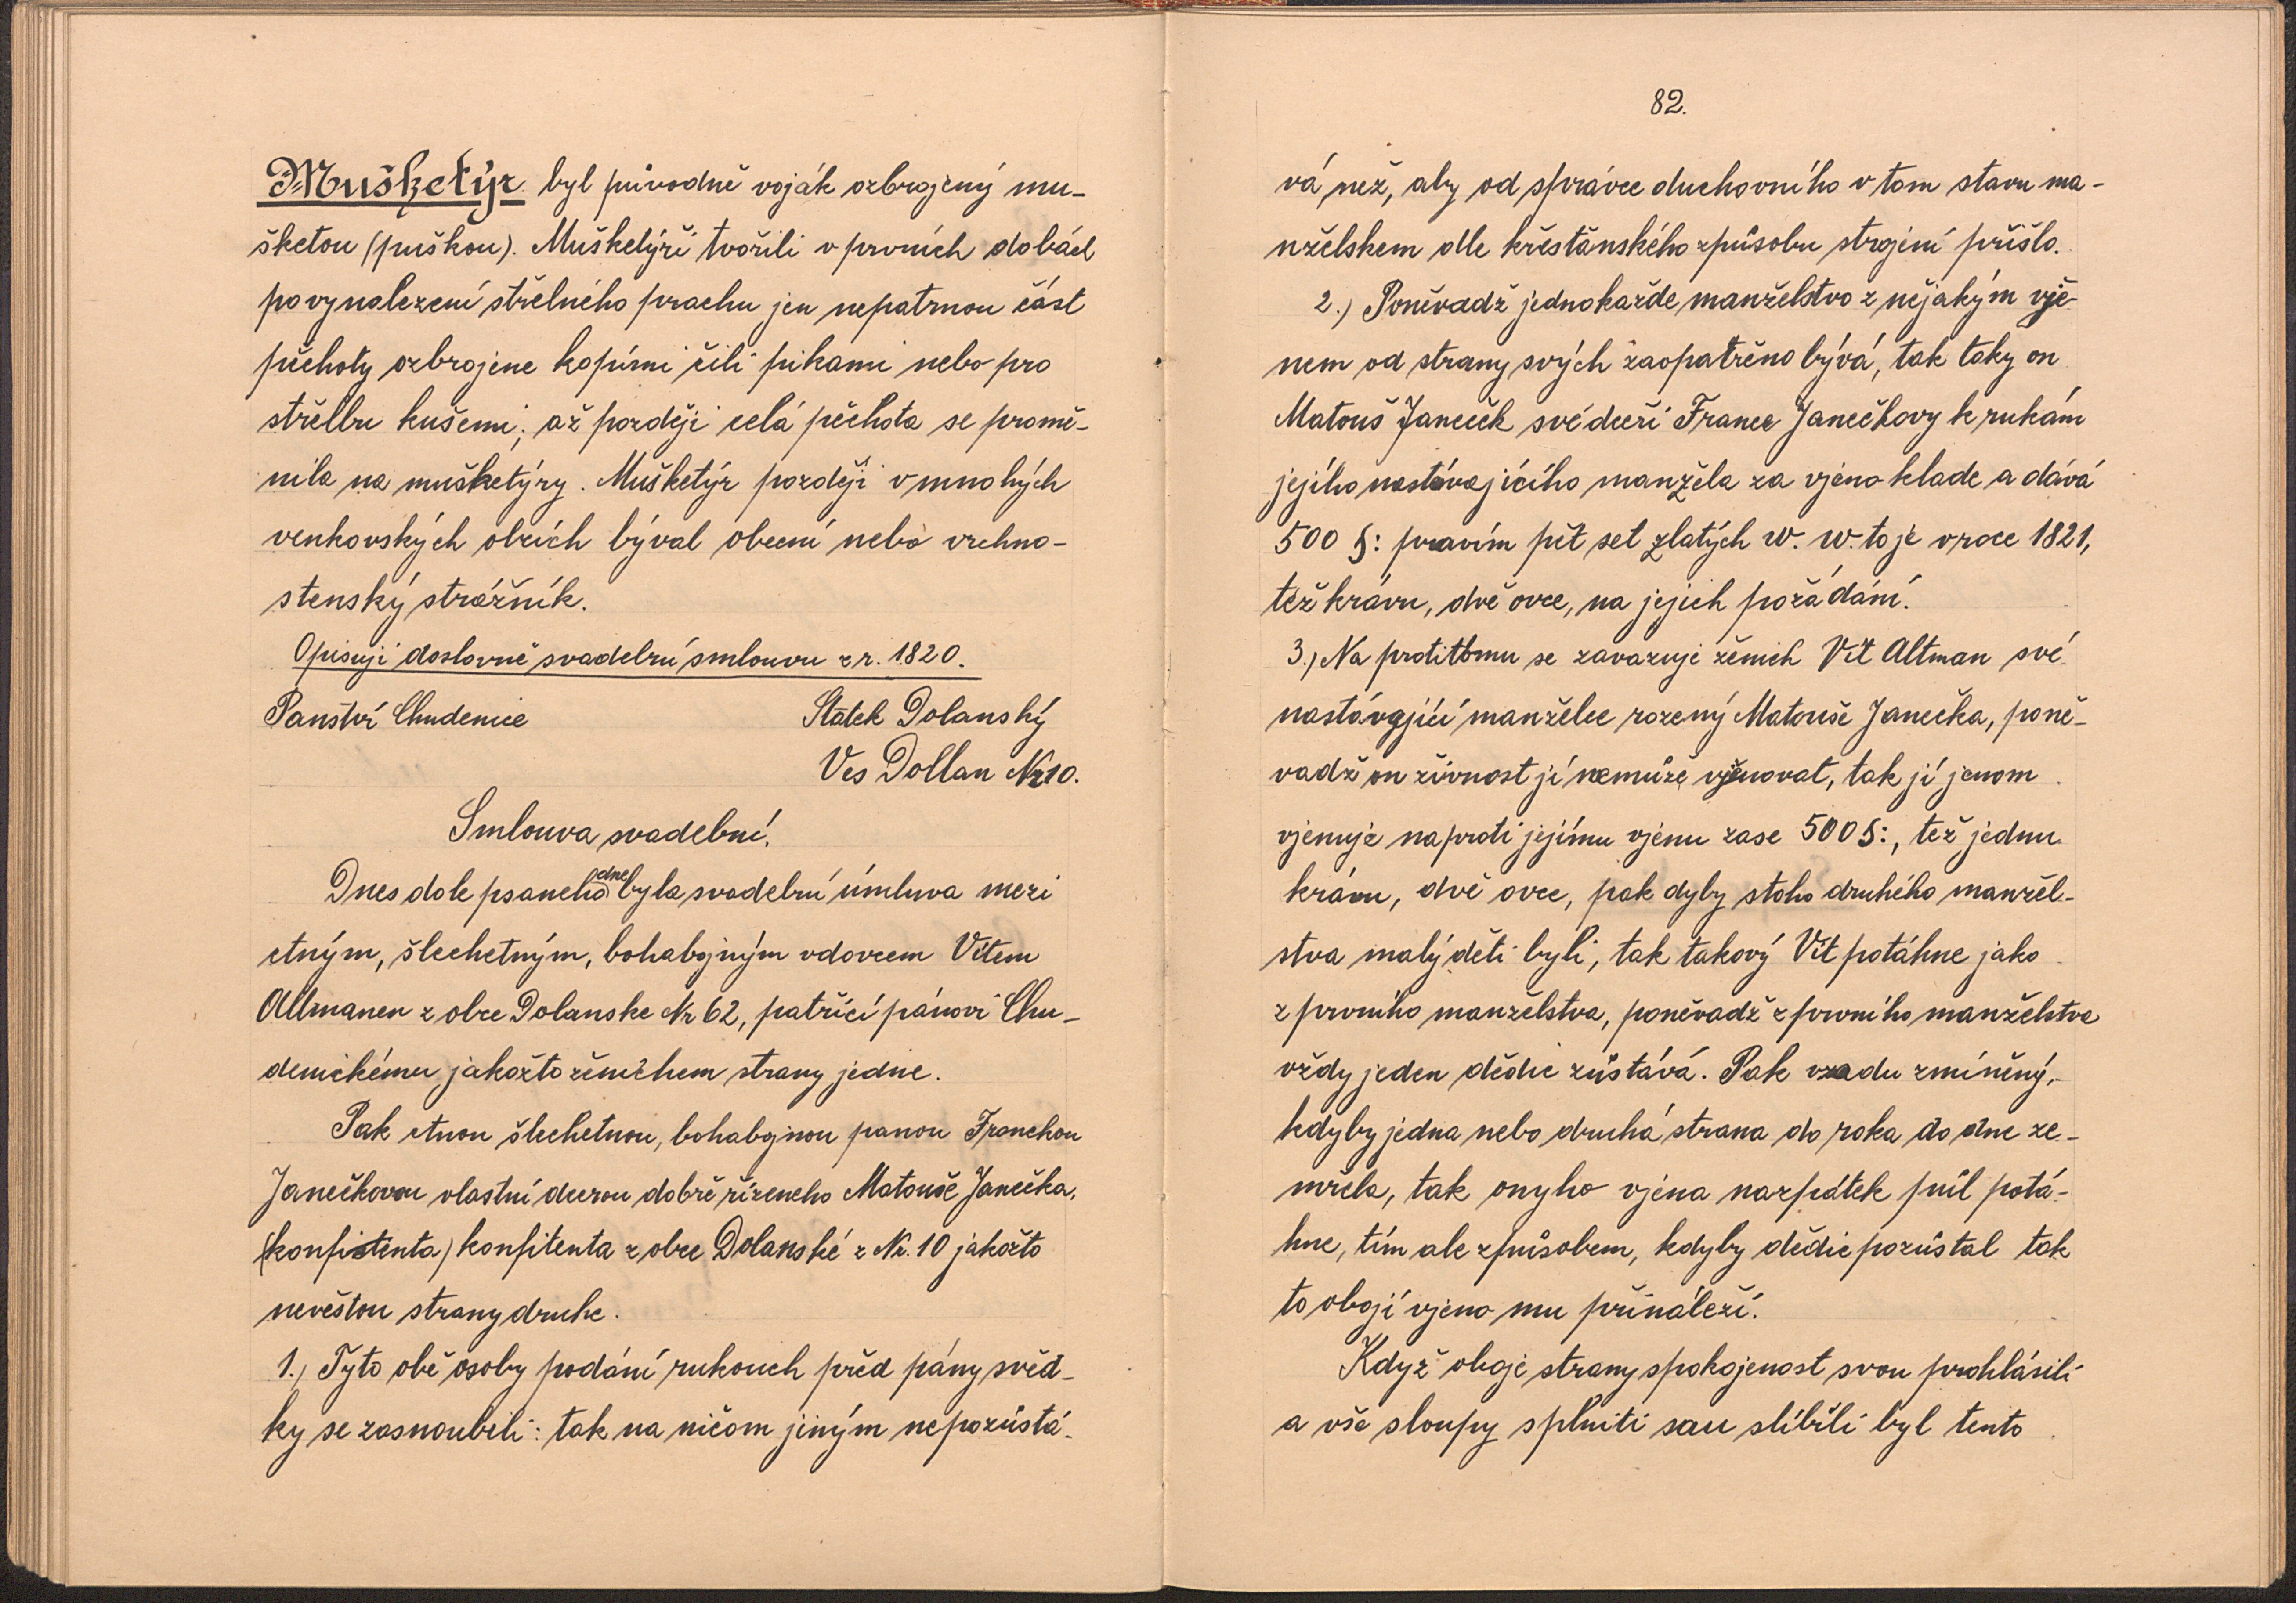 Mušketýr byl původně voják ozbrojený mu-
šketou (puškou). Mušketýři tvořili v prvních dobách
po vynalezení střelného prachu jen nepatrnou část
pěchoty ozbrojene kopími čili pikami nebo pro
střelbu kušemi; až později celá pěchota se promě-
nila na mušketýry. Mušketýr později v mnohých
venkovských obcích býval obecní nebo vrchno-
stenský strážník.
Opisuji doslovně svadební smlouvu z r. 1820.
Panství Chudenice Statek Dolanský
Ves Dollan Nr 10.
Smlouva svadební.
Dnes dole psaneho dne byla svadební úmluva mezi
ctným, šlechetným, bohabojným vdovcem Vítem
Altmanem z obce Dolanske Nr 62, patřící pánovi Chu-
denickému jakožto ženichem strany jedne.
Pak ctnou šlechetnou, bohabojnou panou Franckou
Janečkovou vlastní dcerou dobře řízeneho Matouše Janečka,
(konfistenta) konfitenta z obce Dolanské z Nr. 10 jakožto
nevěstou strany druhe.
1.) Tyto obě osoby podání rukouch před pány svěd-
ky se zasnoubili: tak na ničom jiným nepozůstá-
82.
vá než, aby od správce duchovního v tom stavu ma-
nželskem dle křesťánského způsobu strojení přišlo.
2.) Poněvadž jednokažde manželstvo z nějakým vje-
nem od strany svých zaopatřeno bývá, tak taky on
Matouš Janeček své dceři France Janečkovy k rukám
jejího nastávajícího manžela za vjeno klade a dává
500 §: pravím pět set zlatých W. W. to je v roce 1821,
též krávu, dvě ovce, na jejich požádání.
3.) Na protitomu se zavazuje ženich Vít Altman své
nastávající manželce rozený Matouše Janečka, poně-
vadž on živnost jí nemůže vjenovat, tak jí jenom
vjenuje naproti jejímu vjenu zase 500 §:, tež jednu
krávu, dvě ovce, pak dyby stoho druhého manžel-
stva malý děti byli, tak takový Vít potáhne jako
z prvního manželstva, poněvadž z prvního manželstva
vždy jeden dědic zůstává. Pak vzadu zmíněný,
kdyby jedna nebo druhá strana do roka do dne ze-
mřela, tak onyho vjéna nazpátek půl potá-
hne, tím ale způsobem, kdyby dědic pozůstal tak
to obojí vjeno mu přináleží.
Když oboje strany spokojenost svou prohlásili
a vše sloupy splniti sau slíbíli byl tento